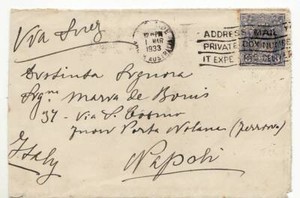 Via Suez
1 MAR
1933
ADDRESS MAIL
PRIVATE BOX NUM
IT EXPE
Distinta Signora
Sigra Maria de Bonis
37 - Via S. Cosmo
fuori Porta Nolana (ferrovia)
Napoli
Italy